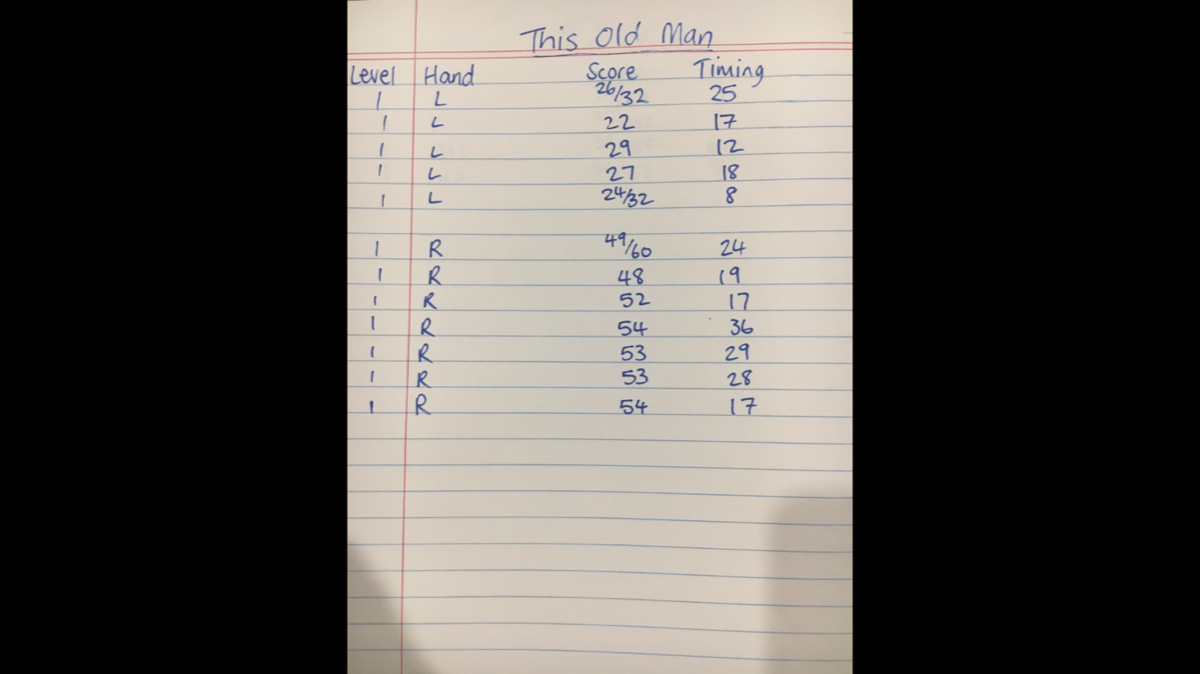 This Old Man
Level Hand Score Timing
1 L 26/32 25
1 L 22 17
1 L 29 12
1 L 27 18
1 L 24/32 8
1 R 49/60 24
1 R 48 19
1 R 52 17
1 R 54 36
1 R 53 29
1 R 53 28
1 R 54 17